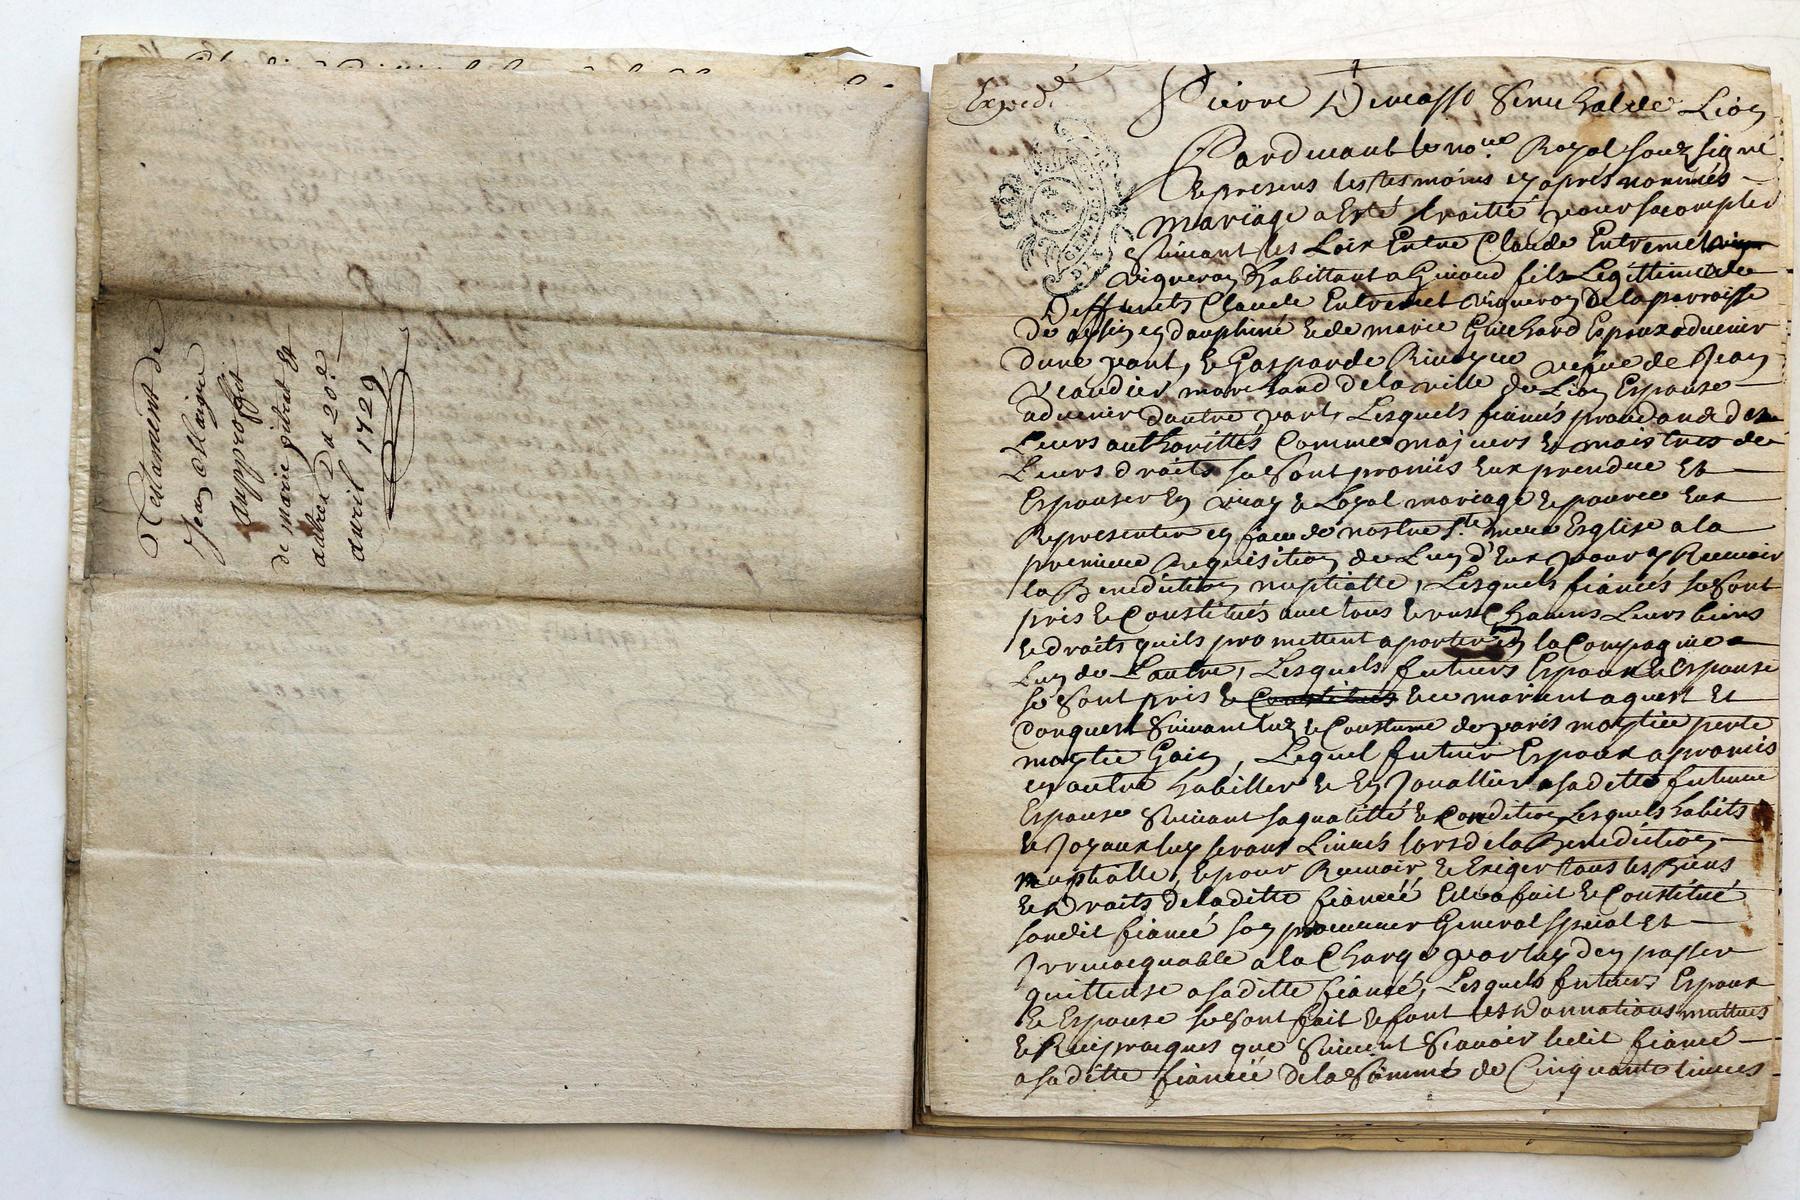 Testament de
Jean
au proffit
de marie gubret et
autres Du 20e
avril 1729
Exped
Pierre Demasso Senechal de Lion
Pardevant le nore Royal Soubsigné
Et presens les tesmoins cy apres nommés
mariage a Esté traitté pour sacomplir
Suivant les Loix Entre Claude Entremet
vigneron habittant a fils Legittime de
Deffunts Claude Entremet vigneron De la parroisse
de en dauphiné Et de marie Guichard Epoux advenir
dune part, Et Gasparde vefve de Jean
marchand de la ville de Lion Espouse
advenir dautre part, Lesquels fiancés procedands de
Leurs authorittés Comme majeurs Et maistres de
Leurs droits se Sont promis Eux prendre Et
Espouser En vray Et Loyal mariage Et pour ce Eux
Representer en face de nostre Ste mere Esglise a la
premiere Requisition de Lun d'Eux pour y Recevoir
la Benediction nuptialle, Lesquels fiancés se Sont
pris Et Constitués avec tous Et uns Chacuns Leurs biens
Et droits quils promettent aporter En la Compagnie
Lun de Lautre, Lesquels futturs Espoux Et Espouse
se Sont pris Et Constitués Et ce marient a quest Et
Conquest Suivant Coustume de paris moytié perte
moytié Gain, Lequel futtur Espoux a promis
en outre habiller Et En Jouallier a sa ditte future
Espouse Suivant sa qualitté Et Condition Lesquels habits
Et Joyaux luy seront Livrés lors de la Benediction
nuptialle, Et pour Recevoir Et Exiger tous les Biens
Et Droits de la ditte fiancée Elle a fait Et Constitué
son dit fiancé son procureur General special Et
Irrevocquable a la Charge par luy den passer
quittense a sa ditte fiancée, Lesquels futturs Espoux
Et Espouse se Sont fait Et font Les Donnations mutues
Et Reciprocques que Suivent Scavoir ledit fiancé
a sa ditte fiancée de la Somme de Cinquante livres